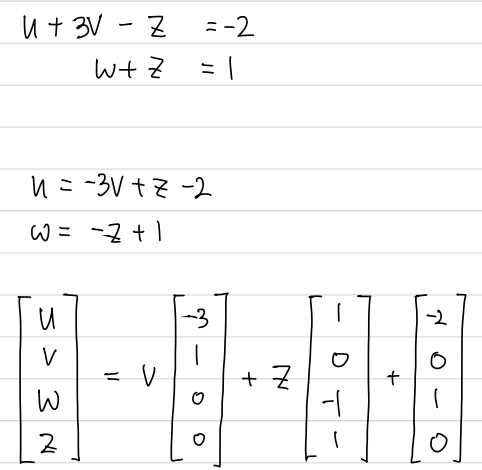 u + 3v - z = -2
w + z = 1
u = -3v + z - 2
w = -z + 1
[u v w z] = v [-3 1 0 0] + z [1 0 -1 1] + [-2 0 1 0]